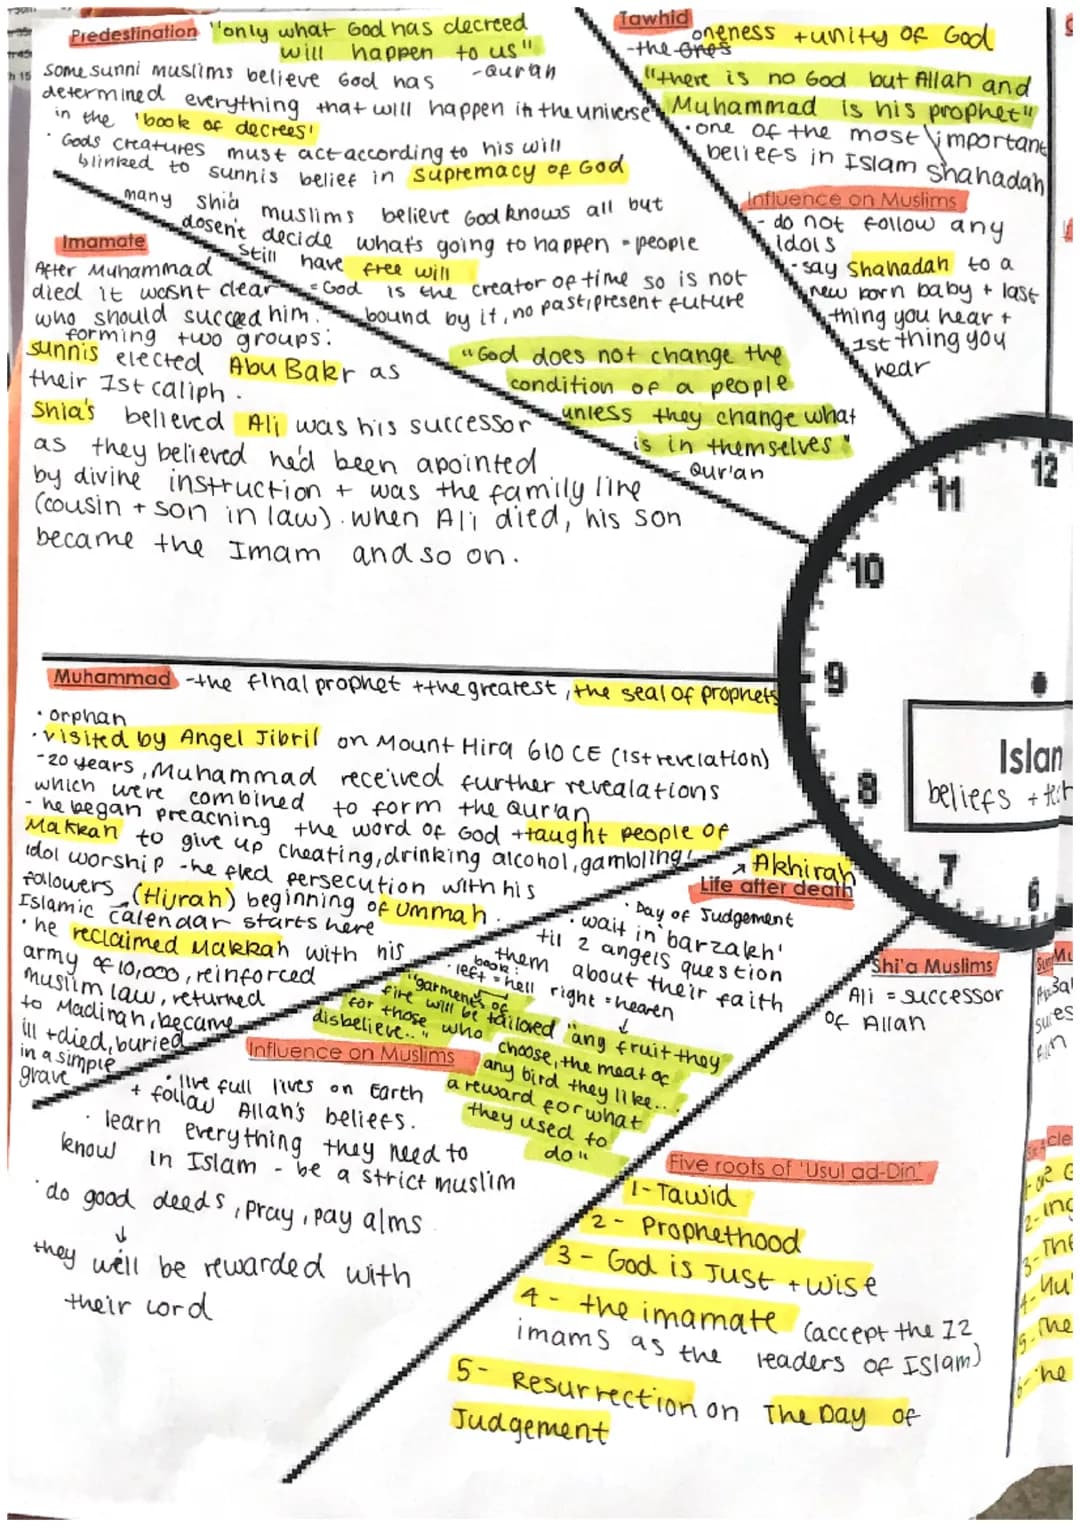 Predestination "only what God has decreed
will happen to us"
-Quran
some sunni muslims believe God has
determined everything that will happen in the universe
in the 'book of decrees'
· Gods creatures must act according to his will
linked to sunnis belief in supremacy of God
many shia muslims believe God knows all but
dosen't decide what's going to happen - people
still have free will
= God is the creator of time so is not
bound by it, no past, present future
"God does not change the
condition of a people
unless they change what
is in themselves"
- Qur'an
Tawhid
oneness + unity of God
-the ones
"there is no God but Allah and
Muhammad is his prophet"
· one of the most important
beliefs in Islam shahadah
Influence on Muslims
- do not follow any
idols
- say Shahadah to a
new born baby + last
thing you hear +
1st thing you
hear
Imamate
After Muhammad
died it wasnt clear
who should succeed him.
forming two groups:
sunnis elected Abu Bakr as
their 1st caliph.
Shia's believed Ali was his successor
as they believed he'd been apointed
by divine instruction + was the family line
(cousin + son in law). when Ali died, his son
became the Imam and so on.
Muhammad -the final prophet + the greatest, the seal of prophets
· orphan
· visited by Angel Jibril on Mount Hira 610 CE (1st revelation)
-20 years, Muhammad received further revealations
which were combined to form the Qur'an
- he began preaching the word of God + taught people of
Makkah to give up cheating, drinking alcohol, gambling!
idol worship - he fled persecution with his
followers (Hijrah) beginning of Ummah.
Islamic calendar starts here
· he reclaimed Makkah with his
army of 10,000, reinforced
muslim law, returned
to Madinah, became
ill + died, buried
in a simple
grave
Akhirah
Life after death
· Day of Judgement
· wait in 'barzakh'
til 2 angels question
them about their faith
book:
· left = hell right = heaven
"garments of
fire will be tailored
for those who
disbelieve.."
"any fruit they
choose, the meat of
any bird they like...
a reward for what
they used to
do"
Influence on Muslims
· live full lives on Earth
+ follow Allah's beliefs.
· learn everything they need to
know in Islam - be a strict muslim
· do good deeds, pray, pay alms
they will be rewarded with
their lord
11
12
10
9
8
7
6
Islam
beliefs +
Shi'a Muslims
Ali = successor
of Allah
Five roots of 'Usul ad-Din'
1- Tawid
2- Prophethood
3 - God is Just + wise
4 - the imamate (accept the 12
imams as the leaders of Islam)
5- Resurrection on The Day of
Judgement